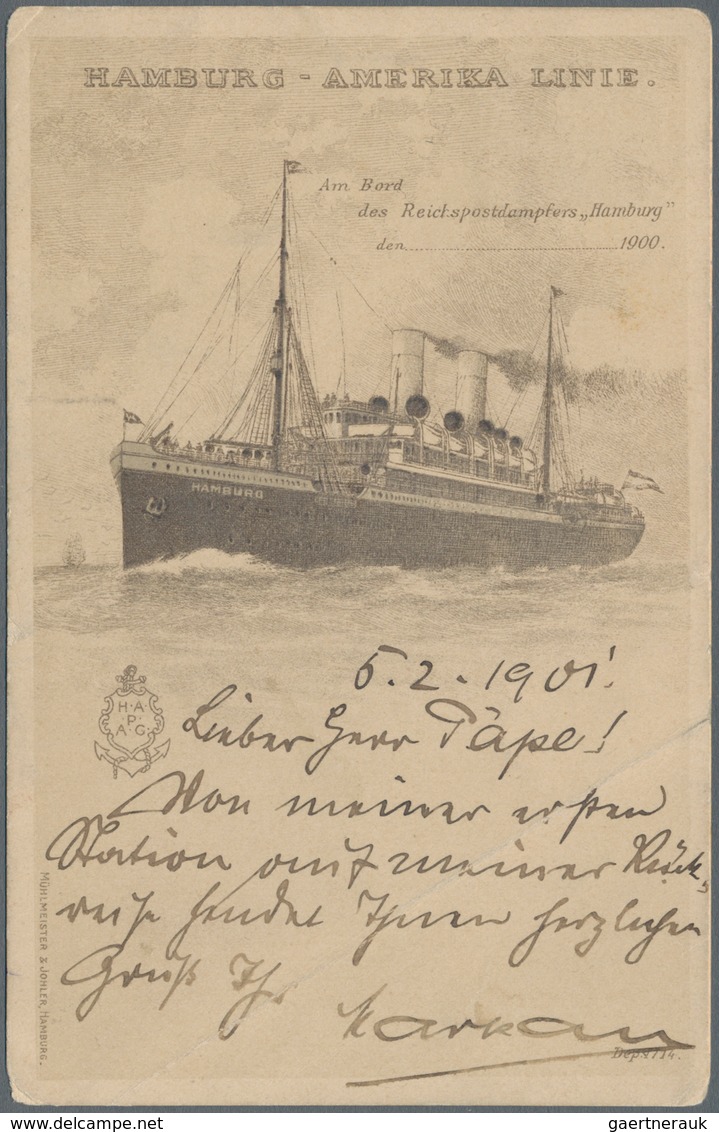 HAMBURG - AMERIKA LINIE.
Am Bord
des Reichspostdampfers „Hamburg”
den 1900.
HAMBURG
5.2.1901.
H·A
P·
A·G.
Lieber Herr Päpe!
Von meiner ersten
Station auf meiner Rück-
reise sendet Ihnen herzlichen
Gruß Ihr
MÜHLMEISTER & JOHLER, HAMBURG.
gaertnerauk